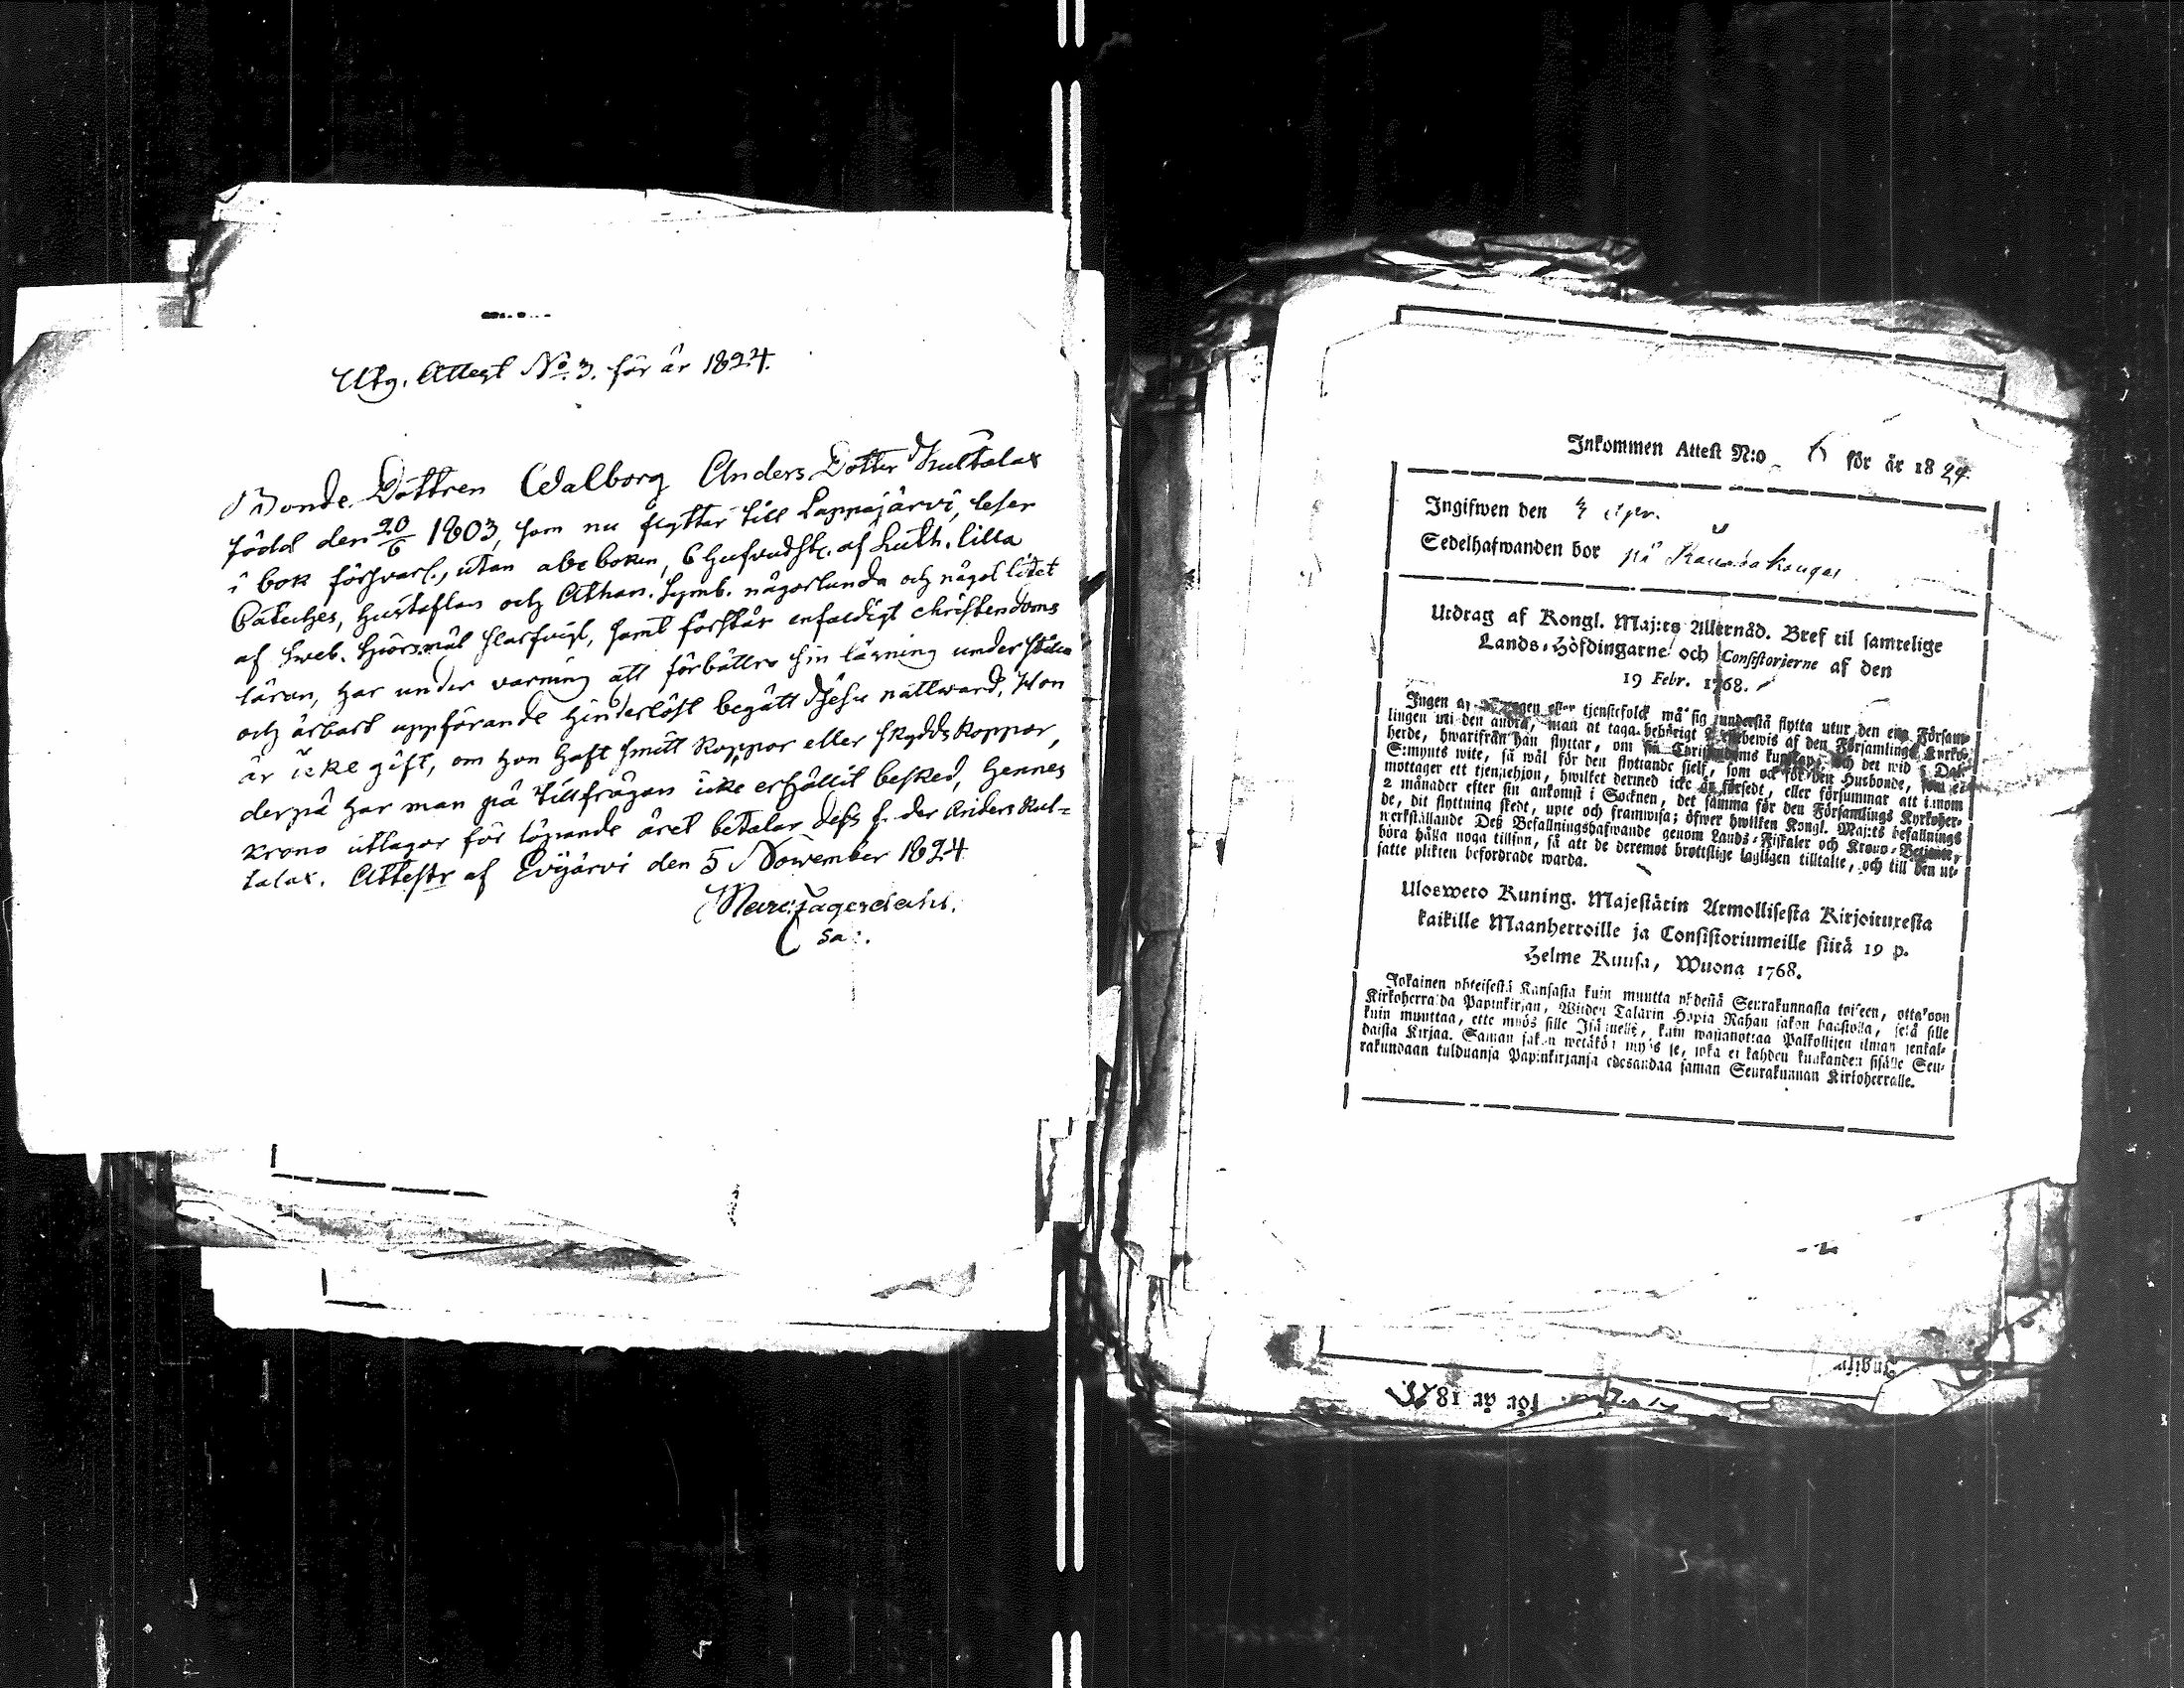 Utg. Attest No. 3. för år 1824.
Bonde Dottren Walborg Anders Dotter Kultalax
född den 20/6 1803, som nu flyttar till Lappajärvi, leser
i bok försvarl., utan abc boken, 6 hufvudst. af Luth. lilla
Cateches, hustaflan och Athan. Symb. någorlunda och något litet
af Sveb. spörsmål slarfvigt, samt förstår enfaldigt christendoms
läran, har under varning att förbättra sin läsning under
och ärbart uppförande hinderlöst begått Jesu nattward. Hon
är icke gift, om hon haft smitt koppor eller skydds koppor,
derpå har man på tillfrågan icke erhållit besked, hennes
krono utlagor för löpande året betalar dess fader Anders Kul=
talax. Attestr af Evijärvi den 5 November 1824
sa:.
Inkommen Attest N:o 6 för år 1824.
Ingifwen den 4 Apr.
Sedelhafwanden bor på
Utdrag af Kongl. Maj:ts Allernåd. Bref til samtelige
Lands-Höfdingarne och Consistorierne af den
19 Febr. 1768.
Ingen af eller tjenstefolck må sig understå flytta utur den ena Försam-
lingen uti den andra, man at taga behörigt bewis af den Församlings Kyrko-
herde, hwarifrån han flyttar, om sin Christendoms kunskap; och det wid 5 Dal:
S:mynts wite, så wäl för den flyttande sjelf, som ock för den Husbonde, som
mottager ett tjenstehjon, hwilket dermed icke är försedt, eller försummar att inom
2 månader efter sin ankomst i Socknen, det samma för den Församlings Kyrkoher-
de, dit flyttning skedt, upte och framwisa; öfwer hwilken Kongl. Maj:ts befallnings
werkställande Deß Befallningshafwande genom Lands-Fiskaler och Krono-Betjente,
böra hålla noga tillsyn, så att de deremot brottslige lagligen tilltalte, och till den ut-
satte plikten befordrade warda.
Ulosweto Kuning. Majestätin Armollisesta Kirjoituxesta
kaikille Maanherroille ja Consistoriumeille siitä 19 p.
Helme Kuusa, Wuona 1768.
Jokainen yhteisestä Kansasta kuin muutta yhdestä Seurakunnasta toiseen, ottakoon
Kirkoherralda Papinkirjan, Wiiden Talarin Hopia Rahan sakon haastolla, sekä sille
kuin muuttaa, ette myös sille Isännelle, kuin wastanottaa Palkollisen ilman senkal-
daista Kirjaa. Saman sakon wetäköön myös se, joka ei kahden kuukauden sisälle Seu-
rakundaan tulduansa Papinkirjansa edesandaa saman Seurakunnan Kirkoherralle.
för år 18